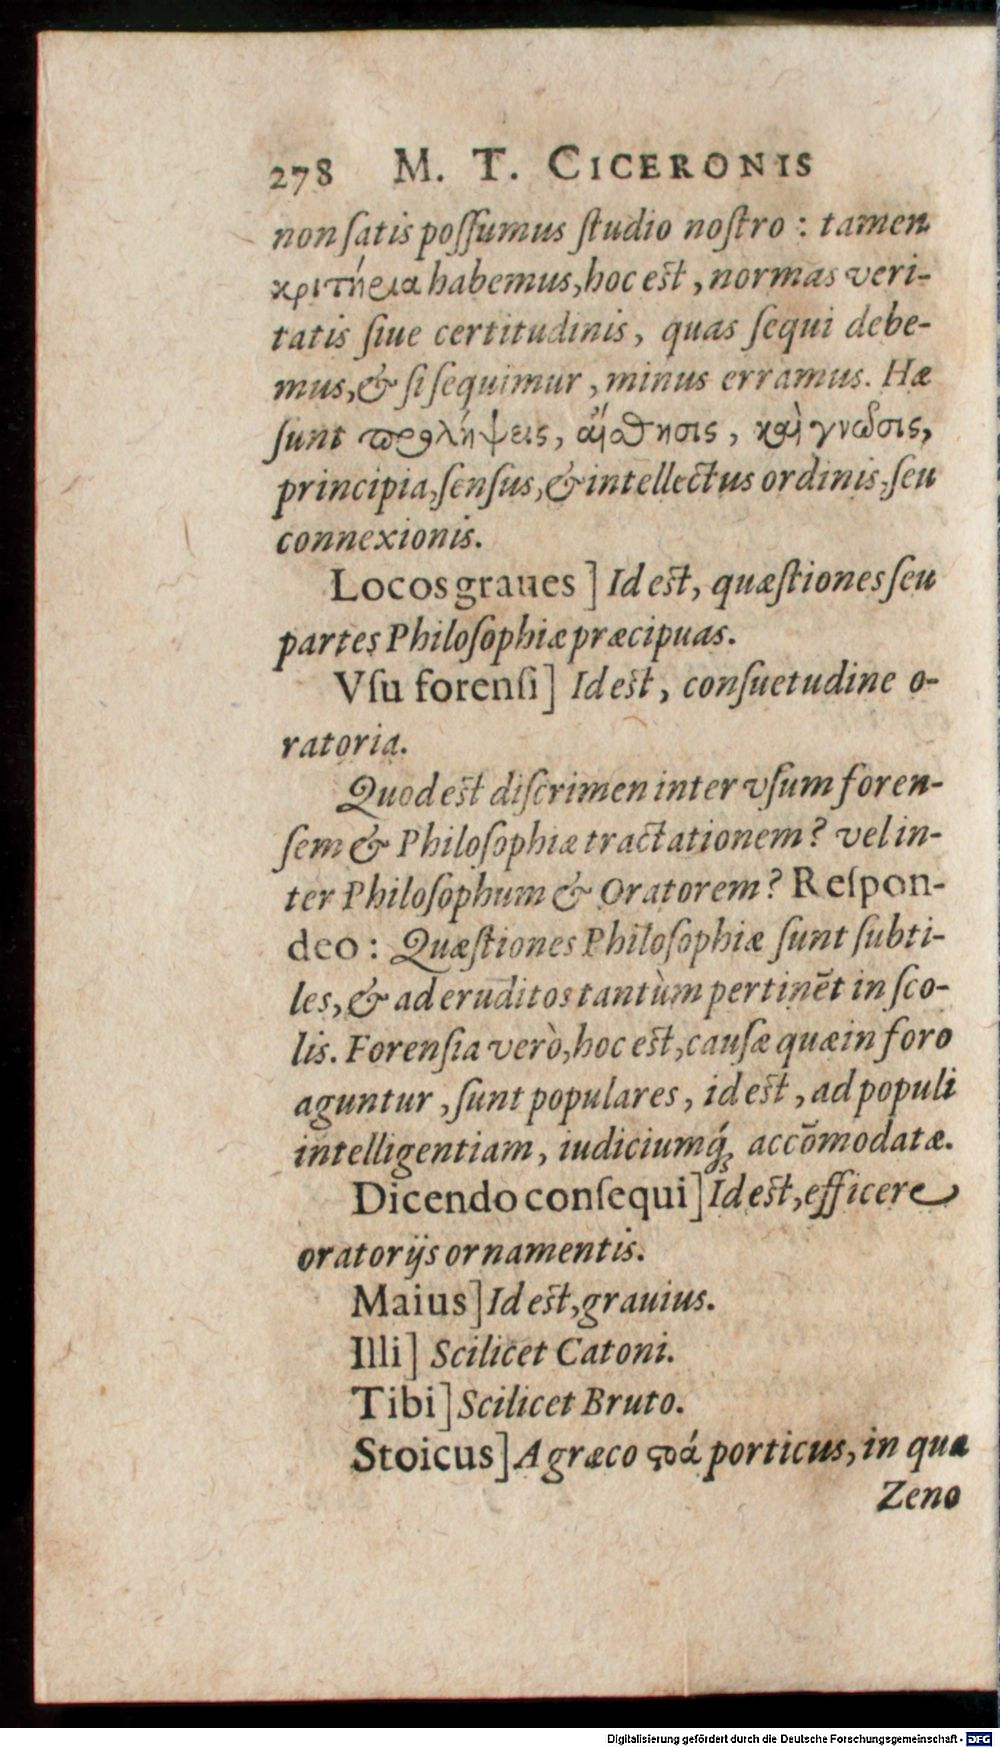 278 M. T. CICERONIS
non ſatis poſſumus ſtudio noſtro : tamen
κριτήρια habemus, hoc eſt, normas veri-
tatis ſiue certitudinis, quas ſequi debe-
mus, & ſi ſequimur, minus erramus. Hæ
ſunt προλήψεις, αἴσθησις, καὶ γνῶσις,
principia, ſenſus, & intellectus ordinis, ſeu
connexionis.
Locos graues ] Id eſt, quæſtiones ſeu
partes Philoſophiæ præcipuas.
Vſu forenſi ] Id eſt, conſuetudine o-
ratoria.
Quod eſt diſcrimen inter vſum foren-
ſem & Philoſophiæ tractationem? vel in-
ter Philoſophum & Oratorem? Reſpon-
deo : Quæſtiones Philoſophiæ ſunt ſubti-
les, & ad eruditos tantùm pertinēt in ſco-
lis. Forenſia verò, hoc eſt, cauſæ quæ in foro
aguntur, ſunt populares, id eſt, ad populi
intelligentiam, iudiciumq́; accōmodatæ.
Dicendo conſequi ] Id eſt, efficere
oratorijs ornamentis.
Maius ] Id eſt, grauius.
Illi ] Scilicet Catoni.
Tibi ] Scilicet Bruto.
Stoicus ] A græco ϛοά porticus, in qua
Zeno
Digitalisierung gefördert durch die Deutsche Forschungsgemeinschaft - DFG